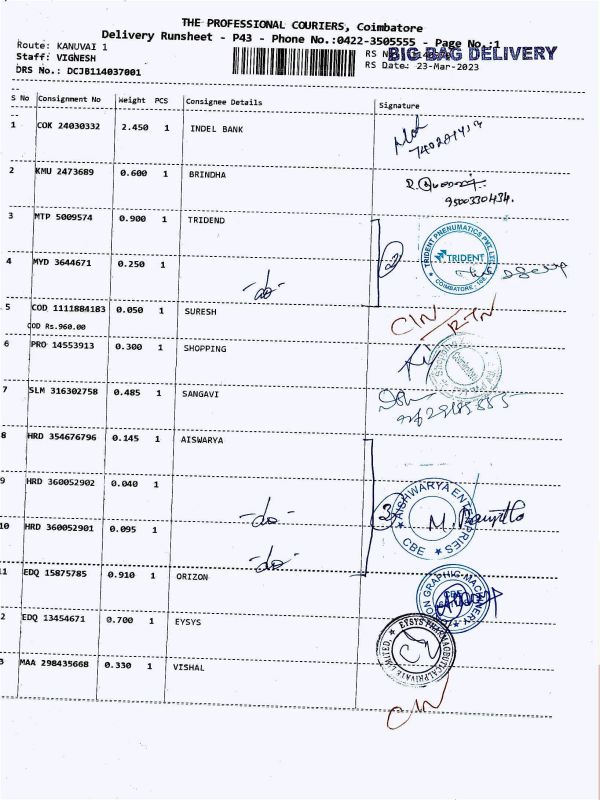 THE PROFESSIONAL COURIERS, Coimbatore
Delivery Runsheet - P43 - Phone No.:0422-3505555 - Page No.:1
BIG BAG DELIVERY
Route: KANUVAI 1
Staff: VIGNESH
RS Date: 23-Mar-2023
DRS No.: DCJB114037001
S No Consignment No Weight PCS Consignee Details Signature
1 COK 24030332 2.450 1 INDEL BANK
2 KMU 2473689 0.600 1 BRINDHA
9500330434.
3 MTP 5009574 0.900 1 TRIDEND
TRIDENT PNENUMATICS PVT. LTD.
TRIDENT
COIMBATORE
2
4 MYD 3644671 0.250 1
-do-
5 COD 1111884183 0.050 1 SURESH
COD Rs.960.00
6 PRO 14553913 0.300 1 SHOPPING
Coimbatore
7 SLM 316302758 0.485 1 SANGAVI
8 HRD 354676796 0.145 1 AISWARYA
9 HRD 360052902 0.040 1
-do-
3
AISHWARYA ENTERPRISES
CBE
10 HRD 360052901 0.095 1
-do-
11 EDQ 15875785 0.910 1 ORIZON
ON GRAPHIC MACHINERY
2 EDQ 13454671 0.700 1 EYSYS
EYSYS PHARMACEUTICAL PRIVATE LIMITED.
3 MAA 298435668 0.330 1 VISHAL